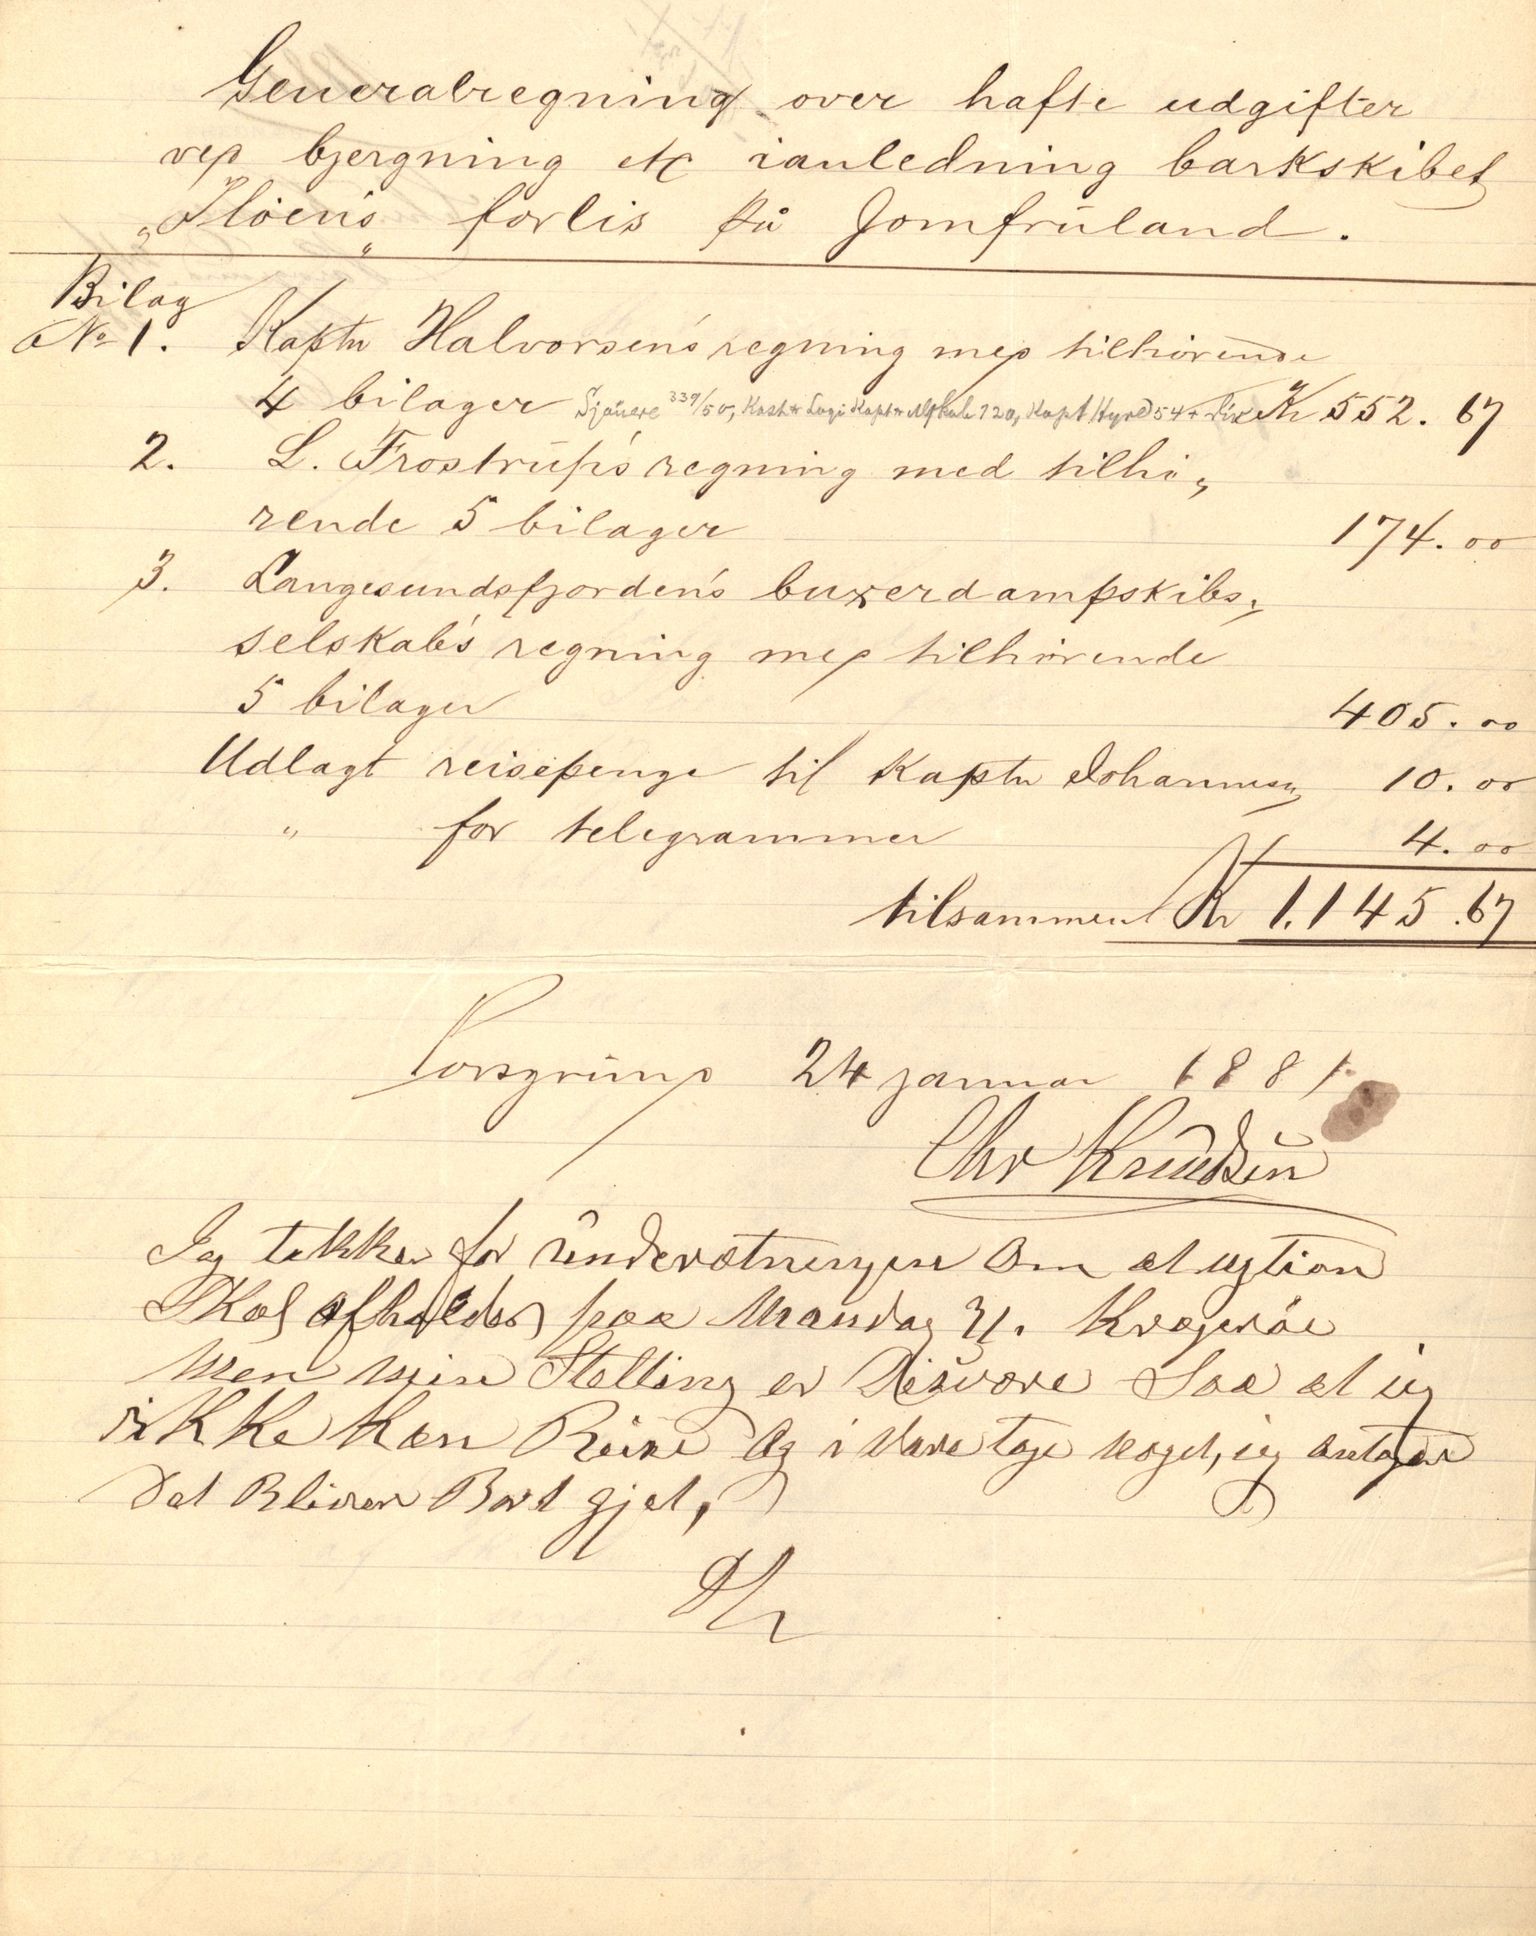 Generalregning over hafte udgifter
ved bjergning etc ianledning barkskibet
„Iloens" forlis på Jomfruland.
Bilag
No 1. Kaptn Halvorsen's regning med tilhørende
4 bilager Sjauere 339/50, Kost & Logi Kaptn Mskab 120, Kapt Hyre 54 + div Kr 552.67
2. L. Frostrup's regning med tilhø„
rende 5 bilager 174.00
3. Langesundsfjorden's buxerdampskibs„
selskab's regning med tilhørende
5 bilager 405.00
Udlagt reisepenge til Kaptn Johannesen 10.00
" for telegrammer 4.00
tilsammen Kr 1.145.67
Porsgrund 24 januar 1881.
Chr Knudsen
Jeg takker for underretningen Om at augtion
Skal afholdes paa Mandag 31. Kragerøe
Men min Stelling er Desvære Saa at jeg
ikke kan Reise Og i Vare tage noget, jeg antager
Det Bliver Bort gjet,